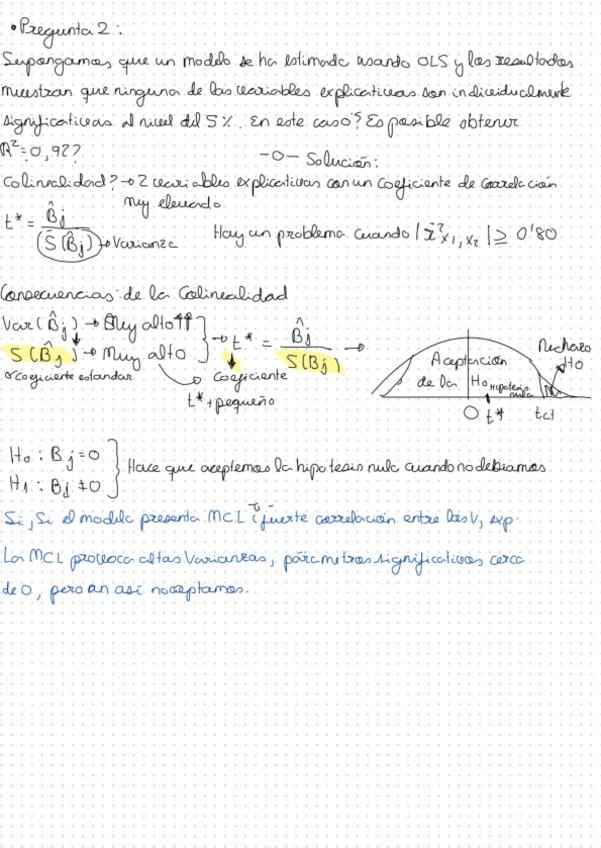 • Pregunta 2:
Supongamos que un modelo se ha estimado usando OLS y los resultados
muestran que ninguna de las variables explicativas son individualmente
significativas al nivel del 5%. En este caso? Es posible obtener
R²=0,92?
-0- Solución:
Colinealidad? → 2 variables explicativas con un coeficiente de correlación
muy elevado
t* = B̂j / S(B̂j) → Varianza
Hay un problema cuando | r̂² x₁, x₂ | ≥ 0'80
Consecuencias de la Colinealidad
Var(B̂j) → Muy alto ↑↑
S(B̂j) → Muy alto
→ t* = B̂j / S(Bj) →
∝ coeficiente estandar
Coeficiente
t* + pequeño
Aceptación
de la H₀
Hipotesis
nula
Rechazo
H₀
0 t* tct
H₀ : Bj = 0
H₁ : Bj ≠ 0
Hace que aceptemos la hipotesis nula cuando no debiamos
Si, Si el modelo presenta MCL fuerte correlación entre las V, exp.
La MCL provoca altas Varianzas, párametros significativos cerca
de 0, pero an así no aceptamos.